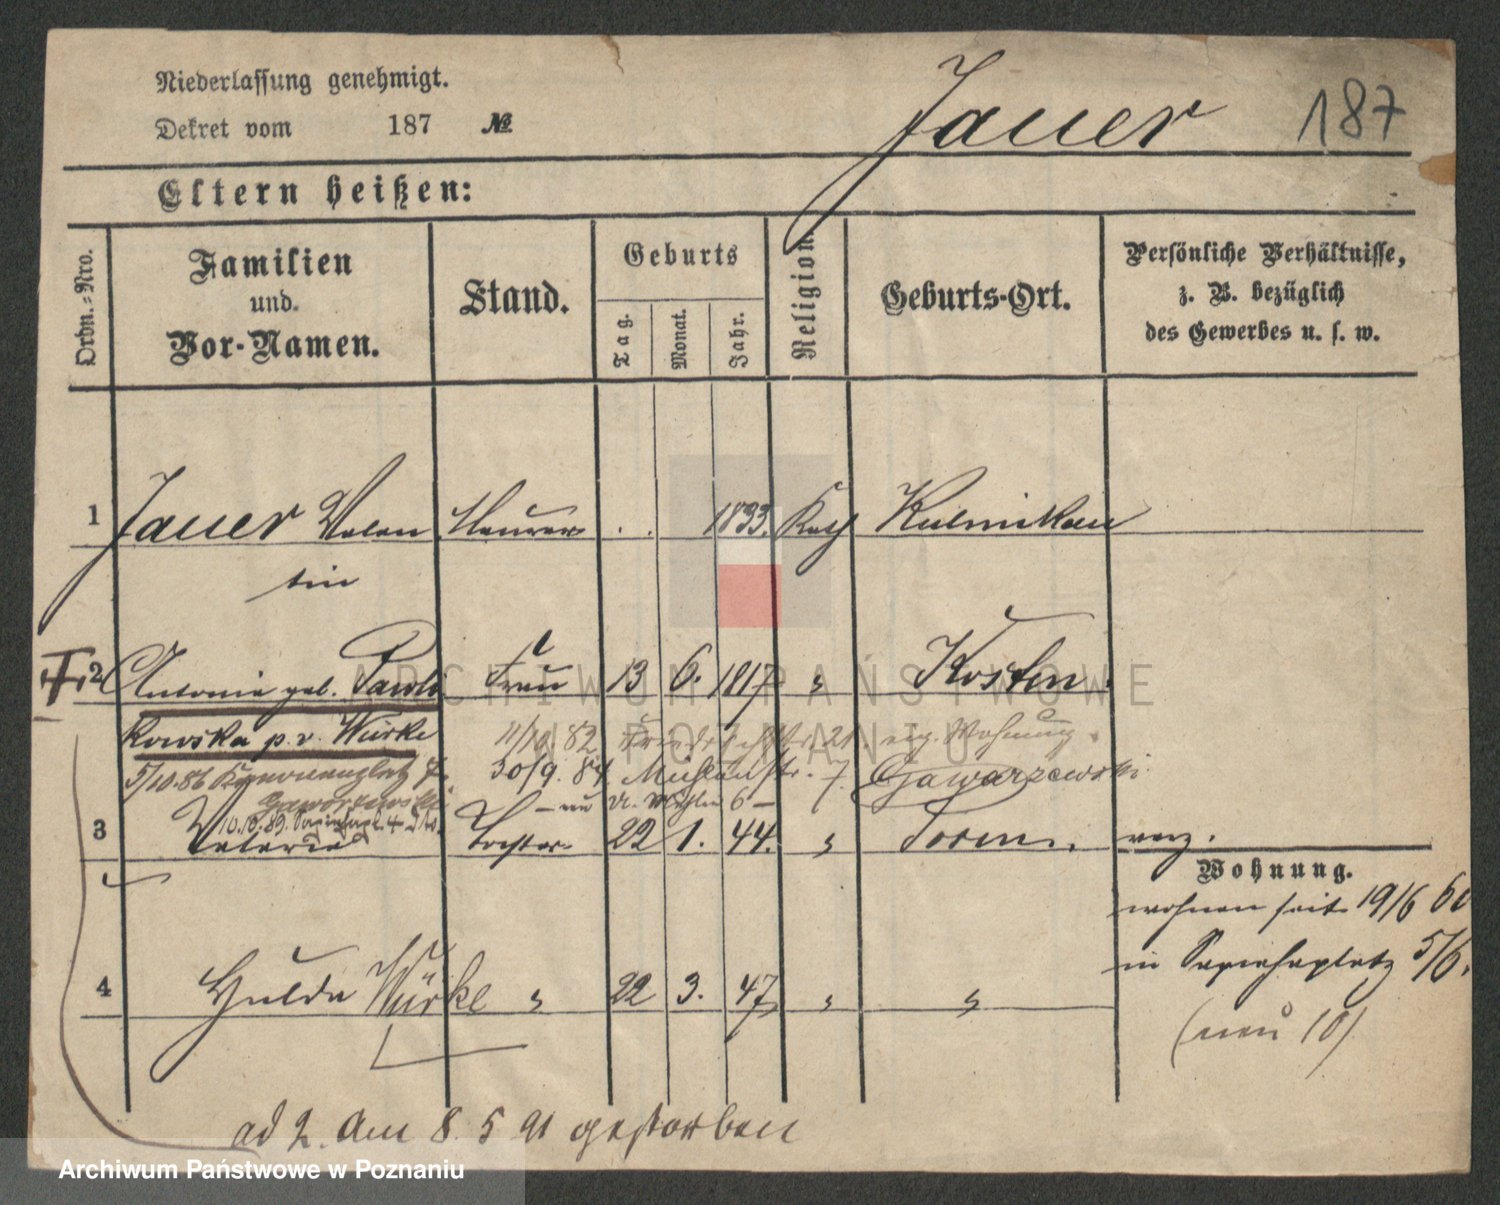 Niederlassung genehmigt.
Jauer 187
Dekret vom 187 №
Eltern heißen:
Ordn.-Nro. Familien und. Vor-Namen. Stand. Geburts Tag. Monat. Jahr. Religion. Geburts-Ort. Persönliche Verhältnisse, z. B. bezüglich des Gewerbes u. s. w.
1 Jauer Valen Maurer . . 1833. Kath Kulmikau
tin
2 Antonie geb. Pawli Frau 13 6. 1817 " Kosten.
kowska p. v. Würke 11/10 82 21. eig. Wohnung.
5/10.86 7. 30/9. 84 Mühlenstr. 7. Gawarzewski
Gaworzewski neu 6
10.10.89. Sapiehapl. 4
3 Valeria Tochter 22 1. 44. " verz.
Wohnung.
wohnen seit 19/6 60
in Sapiehaplatz 5/6.
4 Hulda Würke " 22 3. 47 " "
(neu 10)
ad 2. am 8. 5 91 gestorben
ARCHIWUM PAŃSTWOWE
W POZNANIU
Archiwum Państwowe w Poznaniu